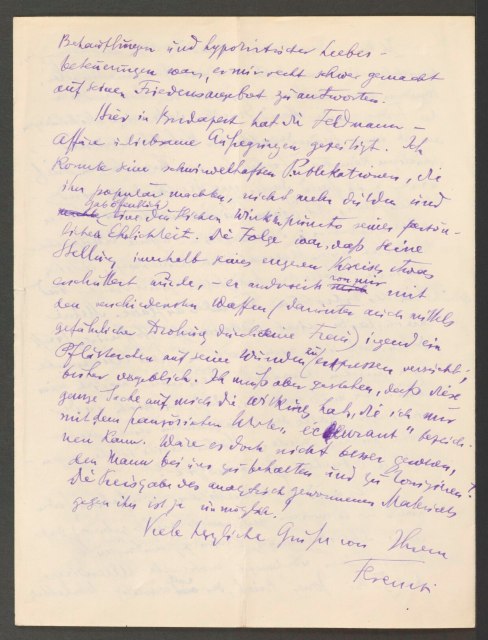 Behauptungen und hypokritischer Liebes-
beteuerungen war, es mir recht schwer gemacht
auf seinen Friedensangebot zu antworten.
Hier in Budapest hat die Feldmann-
Affäre unliebsame Aufregungen gezeitigt. Ich
konnte seine schwindelhaften Publikationen, die
ihn populär machten, nicht mehr dulden und
seines persön-
lichen Ehrlichkeit. Die Folge war, daß seine
Stellung innerhalb seines engeren Kreises etwas
erschüttert wurde, – er andrerseits von mir mit
den verschiedensten Waffen (darunter auch mittels
gefährlicher Drohung durch seine Frau) irgend ein
Pflästerchen auf seine Wunden zu erpressen versucht,
bisher vergeblich. Ich muß aber gestehen, daß diese
ganze Sache auf mich die Wirkung hat, die ich nur
mit dem französischen Worte „écœurant" bezeich-
nen kann. Wäre es doch nicht besser gewesen,
den Mann bei uns zu behalten und zu
Die Preisgabe des analytisch gewonnenen Materials
gegen ihn ist ja unmöglich!
Viele herzliche Grüße von Ihrem
Ferenczi